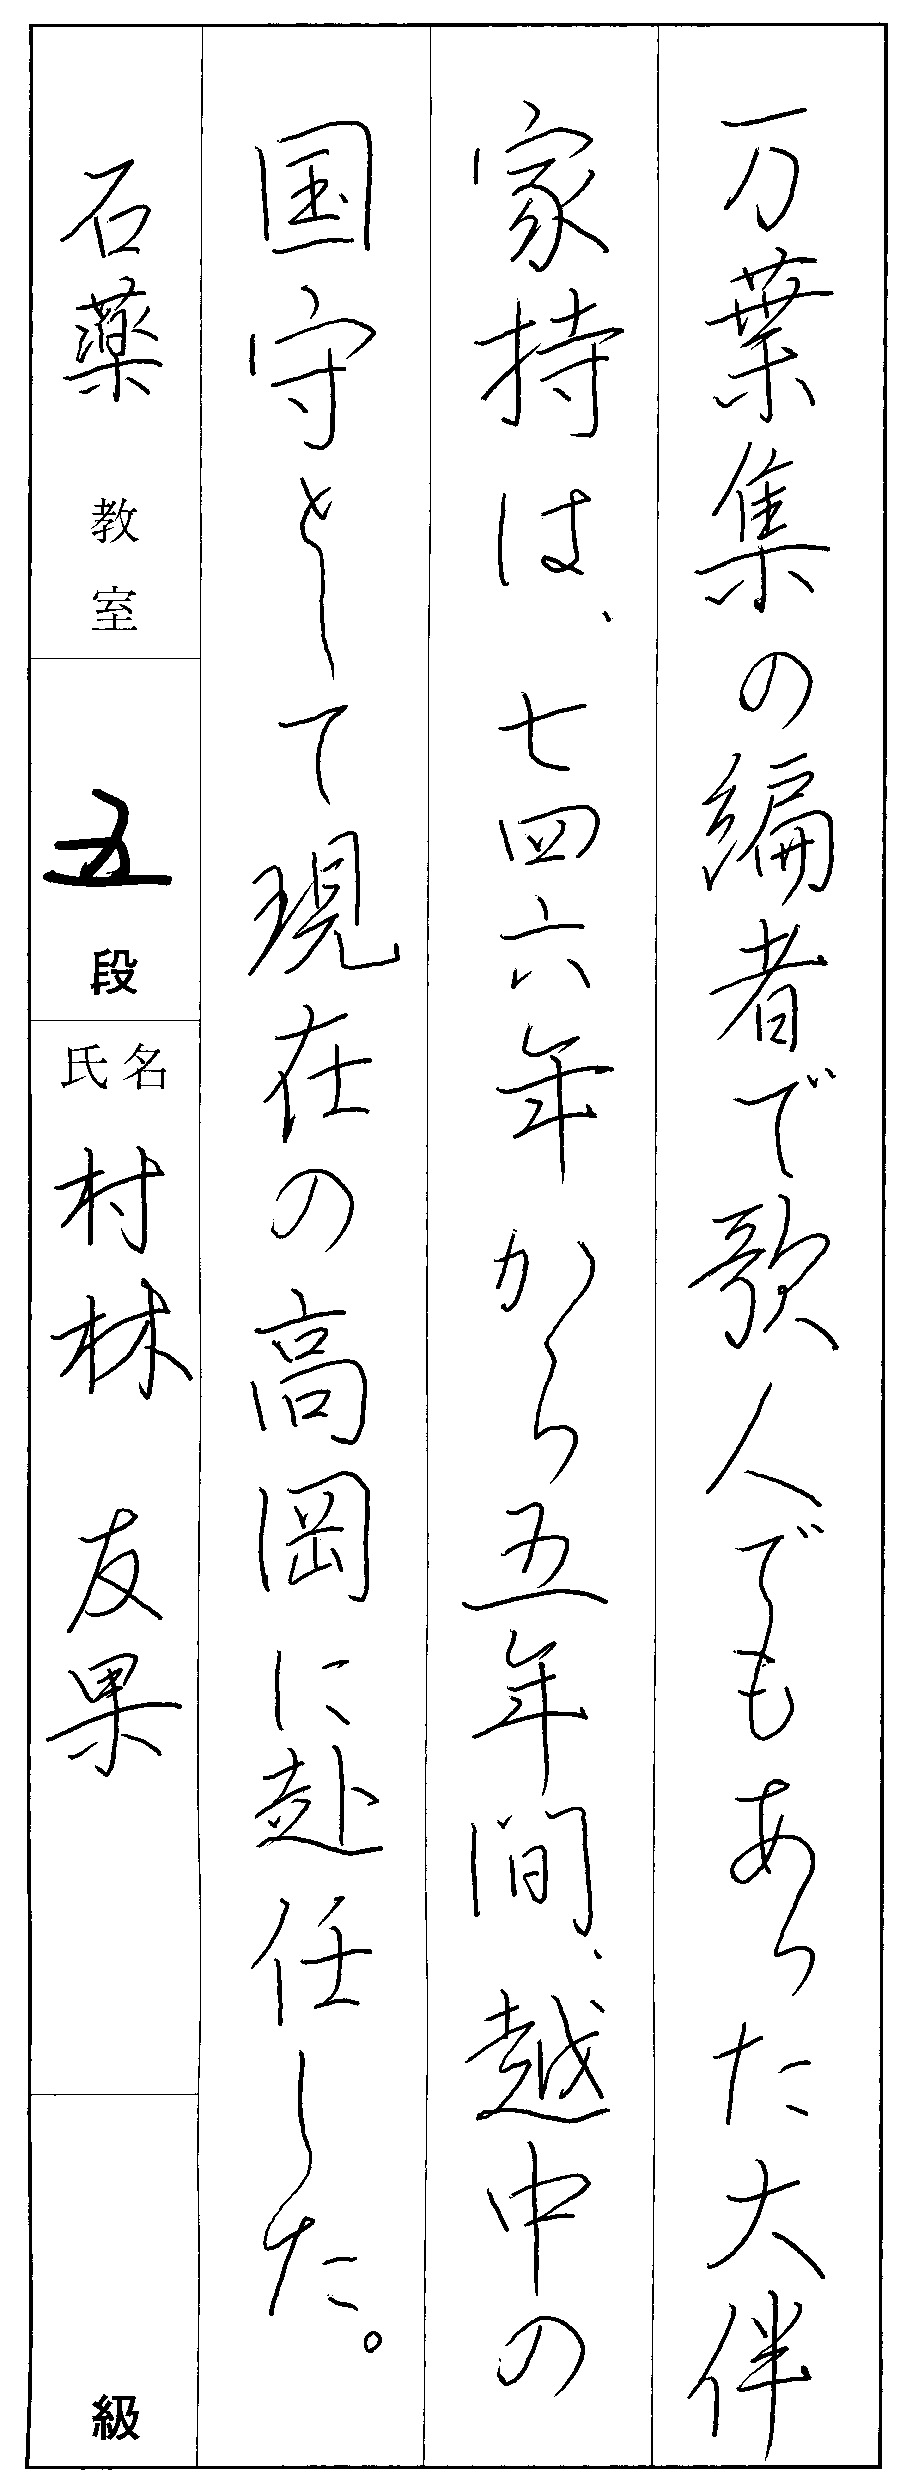 万葉集の編者で歌人でもあった大伴
家持は、七四六年から五年間、越中の
国守として現在の高岡に赴任した。
石薬 教室
五 段
氏名 村林 友果
級